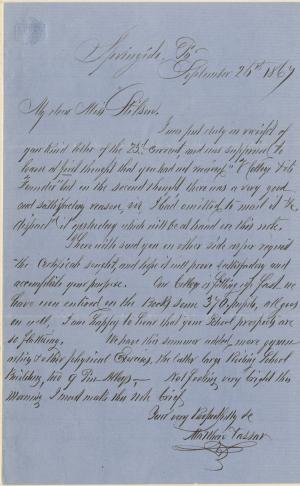 Springside, Po
September 26th 1867
My dear Miss Stilson.
I was put duly in receipt of
your kind letter of the 23d Current, and was surprised to
learn at first thought that you had not received "V College & its
Founder" but on the second thought there was a very good
and satisfactory reason, viz I had omitted to mail it. I
it yesterday which will be at hand on this note.
I herewith send you on other side as per request
the Certificate sought, and hope it will prove satisfactory and
accomplish your purpose. Our College is filling up fast. we
have now entered on the Books some 370 pupils, all goes
on well. I am happy to hear that your School prospects are
so flattering. We have this summer added more gymn-
astics & other physical Exercises, the latter large Riding School
Building, two of Ten Alleys,— Not feeling very bright this
Morning I must make this Note brief,
Yours very Respectfully &c
Matthew Vassar